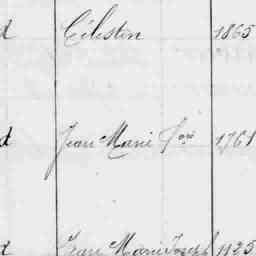 d Célestin 1865
d Jean Marie Fçois 1761
d Jean Marie Joseph 1125